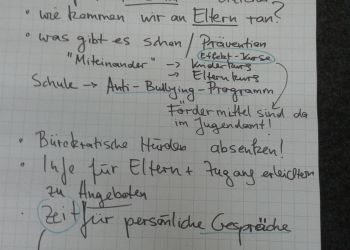 • wie kommen wir an Eltern ran?
• was gibt es schon / Prävention
Effekt-Kurse
"Miteinander" → Kinderkurs
→ Elternkurs
Schule → Anti-Bullying-Programm
Fördermittel sind da
im Jugendamt!
• Bürokratische Hürden absenken!
• Info für Eltern + Zugang erleichtern
zu Angeboten
• Zeit für persönliche Gespräche